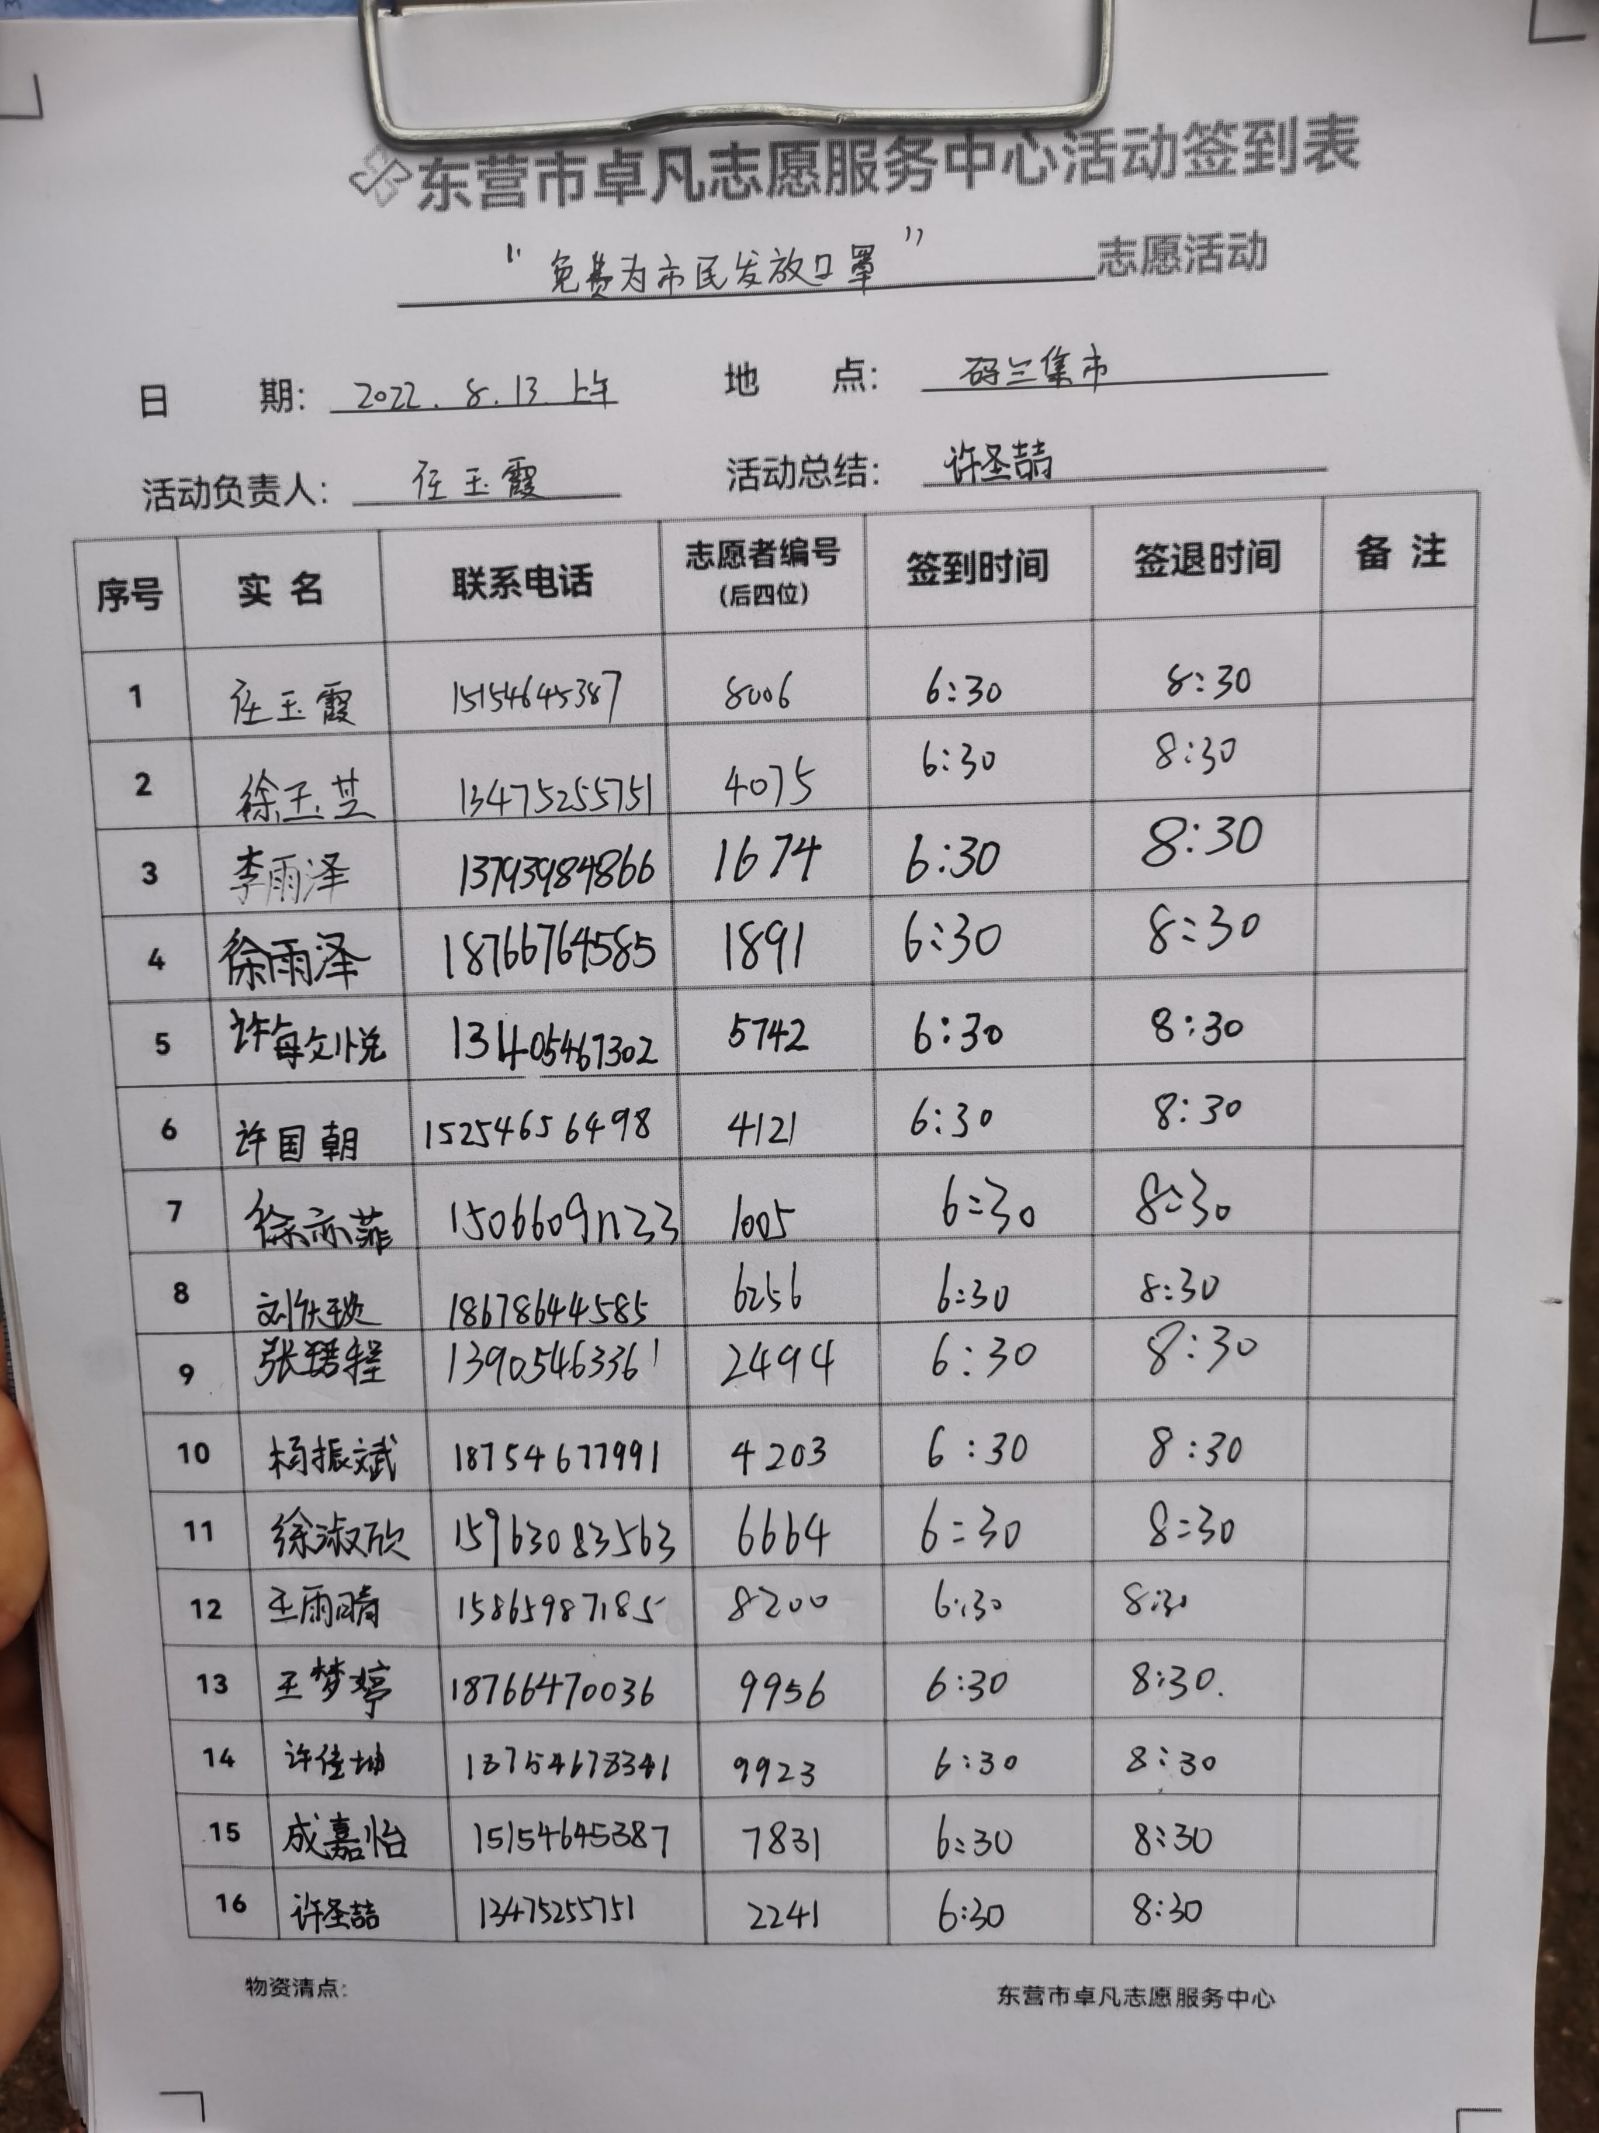 东营市卓凡志愿服务中心活动签到表
“免费为市民发放口罩” 志愿活动
日 期: 2022.8.13 上午 地 点: 码兰集市
活动负责人: 任玉霞 活动总结: 许圣喆
序号 实名 联系电话 志愿者编号 (后四位) 签到时间 签退时间 备注
1 任玉霞 15154645387 8006 6:30 8:30
2 徐玉芝 13475255751 4075 6:30 8:30
3 李雨泽 13793984866 1674 6:30 8:30
4 徐雨泽 18766764585 1891 6:30 8:30
5 许每文悦 13405467302 5742 6:30 8:30
6 许国朝 15254656498 4121 6:30 8:30
7 徐亦菲 15066091123 1005 6:30 8:30
8 18678644585 6256 6:30 8:30
9 13905463361 2494 6:30 8:30
10 杨振斌 18754677991 4203 6:30 8:30
11 徐淑欣 15963083563 6664 6:30 8:30
12 王雨晴 15865987185 8200 6:30 8:30
13 王梦婷 18766470036 9956 6:30 8:30.
14 许佳坤 18754678341 9923 6:30 8:30
15 成嘉怡 15154645387 7831 6:30 8:30
16 许圣喆 13475255751 2241 6:30 8:30
物资清点: 东营市卓凡志愿服务中心